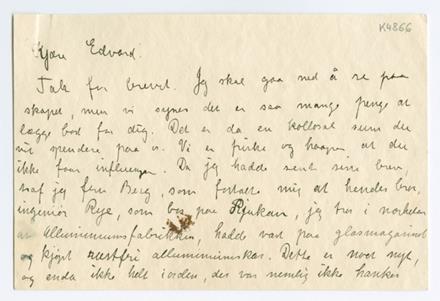 K4866
Kjære Edvard!
Tak for brevet. Jeg skal gaa ned å se paa
skapet, men vi synes det er saa mange penge at
lægge bort for dig. Det er da en kollosal sum du
vil spendere paa os. Vi er friske og haaper at du
ikke faar influenza. Da jeg hadde sent sine brev,
traf jeg fru Berg, som fortalte mig at hendes bror,
ingeniør Rye, som bor paa Rjukan, jeg tror i nærheten
av Alluminiumsfabrikken, hadde vært paa glasmagasinet
og kjøpt rustfri alluminiumskar. Dette er noet nyt,
og enda ikke helt i orden, der var nemlig ikke hanker